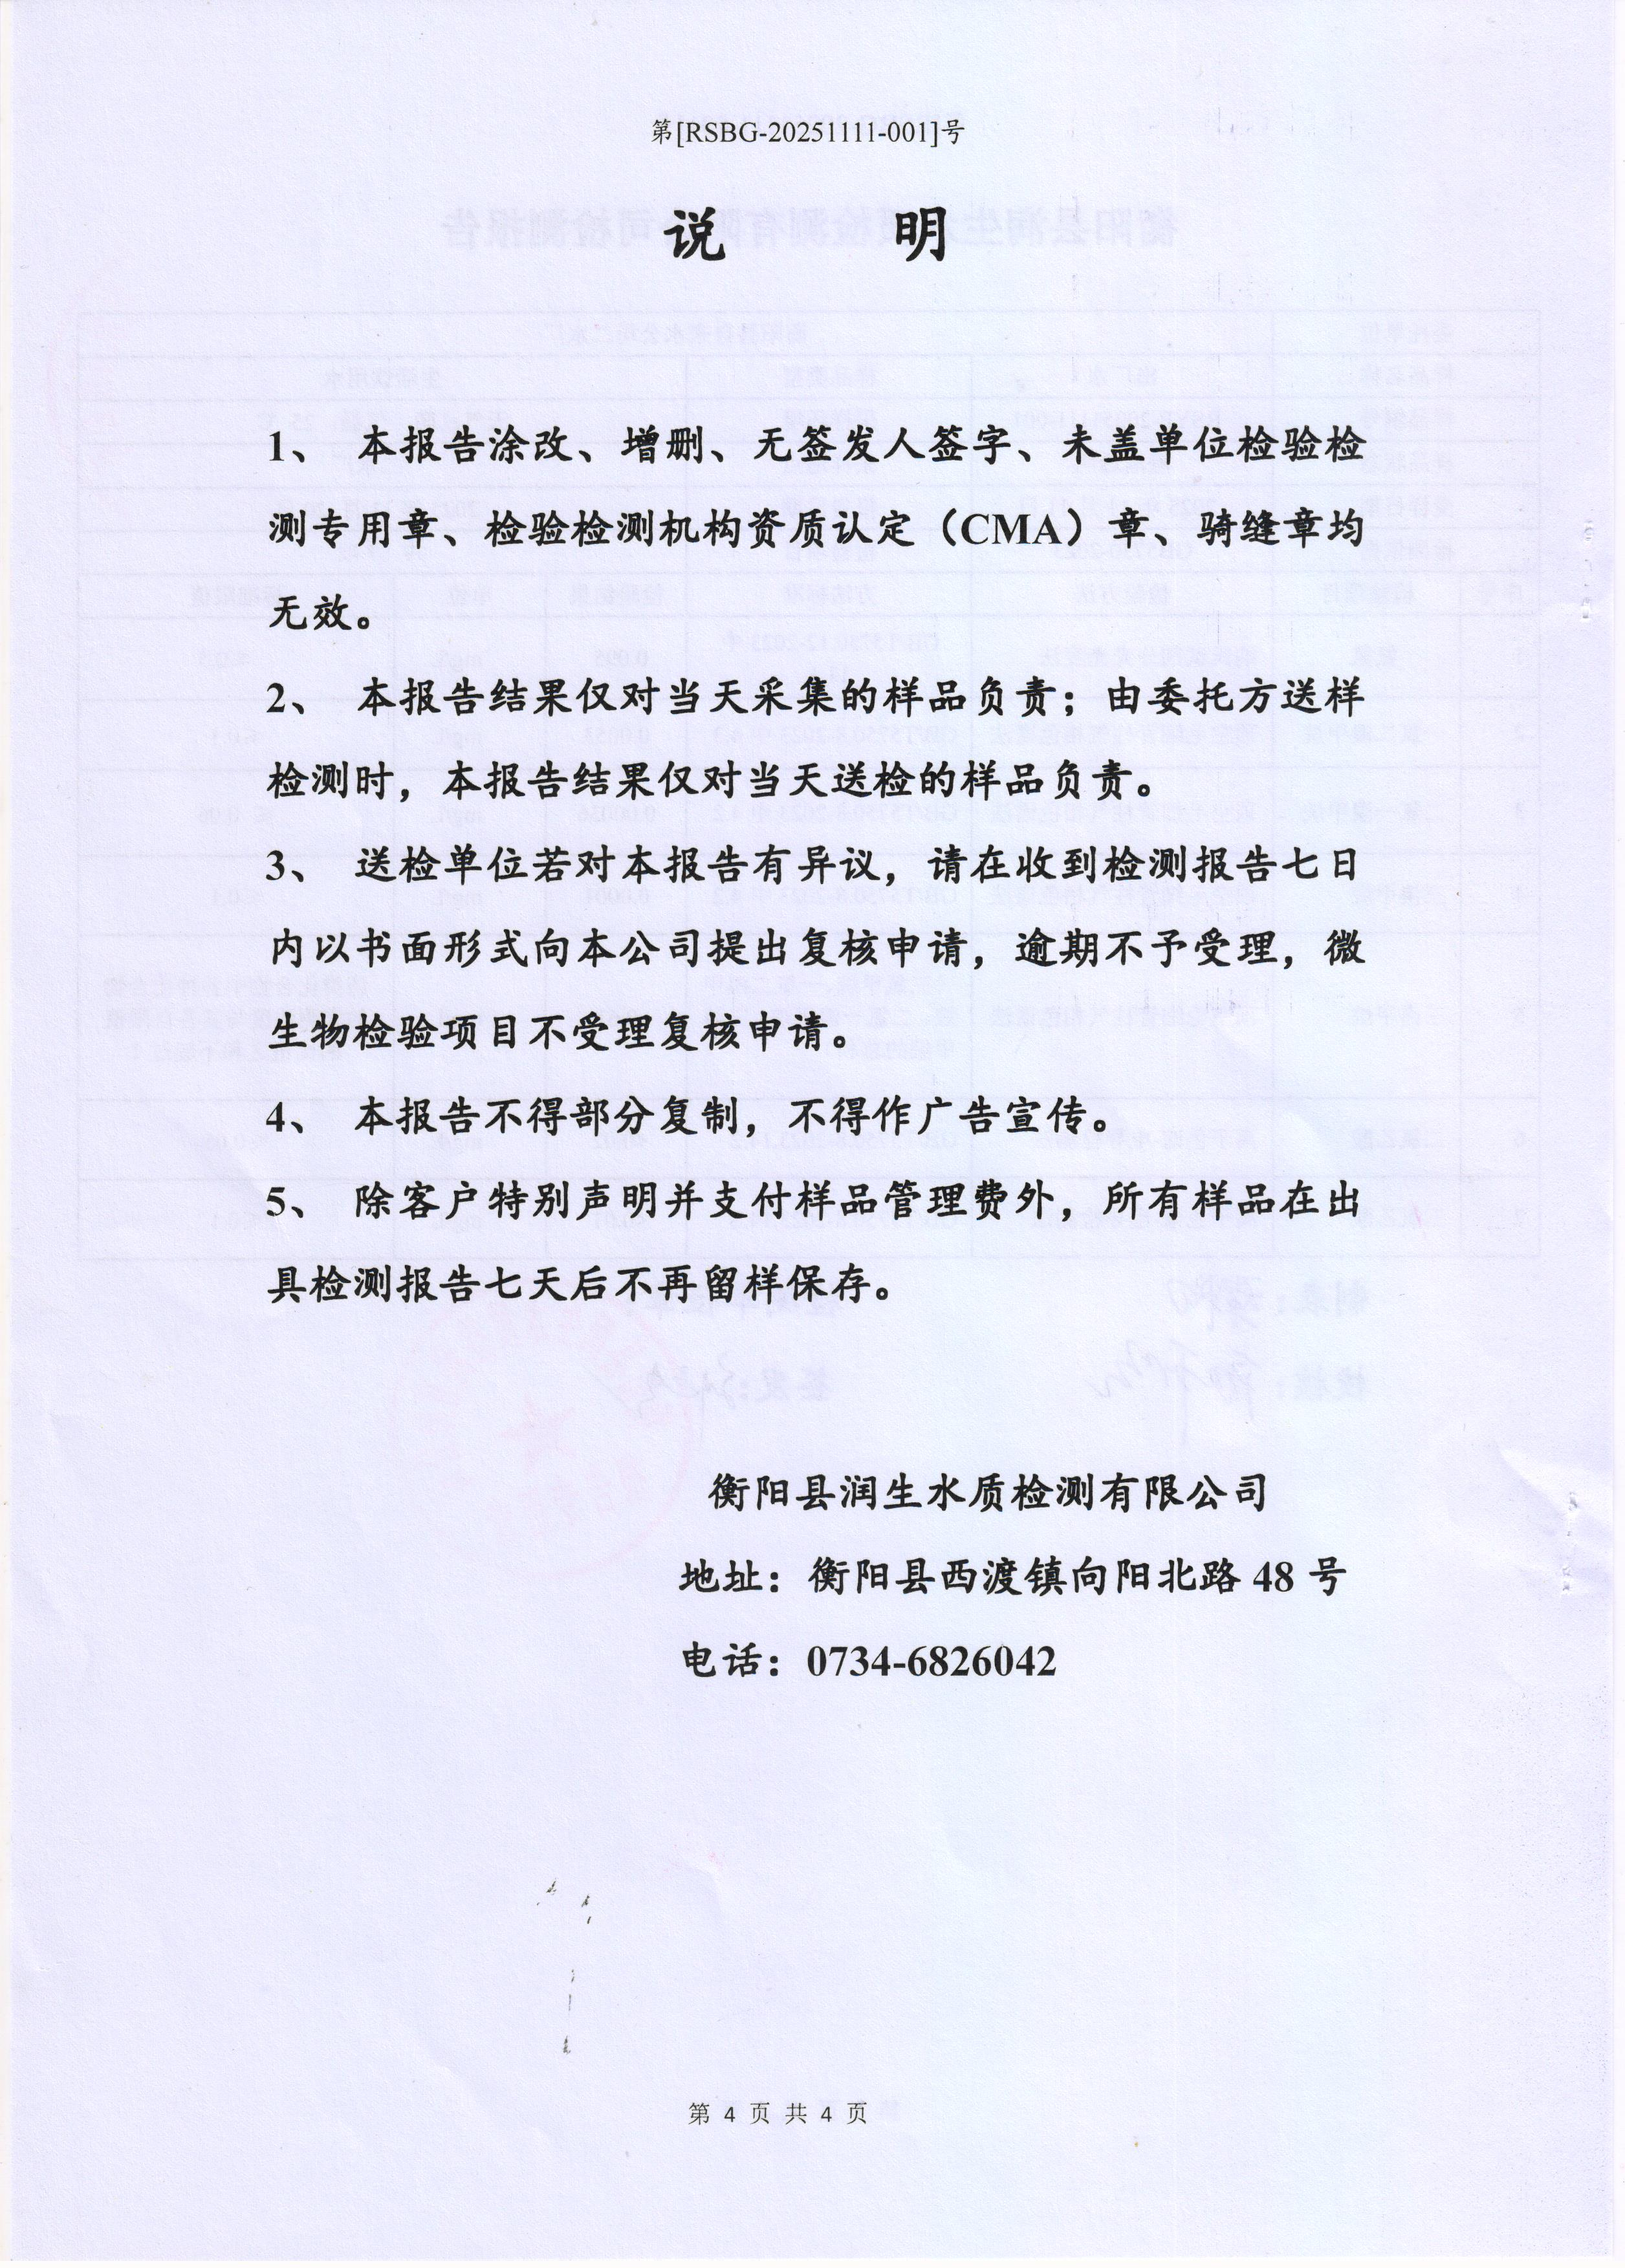 第[RSBG-20251111-001]号
说 明
1、 本报告涂改、增删、无签发人签字、未盖单位检验检
测专用章、检验检测机构资质认定（CMA）章、骑缝章均
无效。
2、 本报告结果仅对当天采集的样品负责；由委托方送样
检测时，本报告结果仅对当天送检的样品负责。
3、 送检单位若对本报告有异议，请在收到检测报告七日
内以书面形式向本公司提出复核申请，逾期不予受理，微
生物检验项目不受理复核申请。
4、 本报告不得部分复制，不得作广告宣传。
5、 除客户特别声明并支付样品管理费外，所有样品在出
具检测报告七天后不再留样保存。
衡阳县润生水质检测有限公司
地址：衡阳县西渡镇向阳北路 48 号
电话：0734-6826042
第 4 页 共 4 页